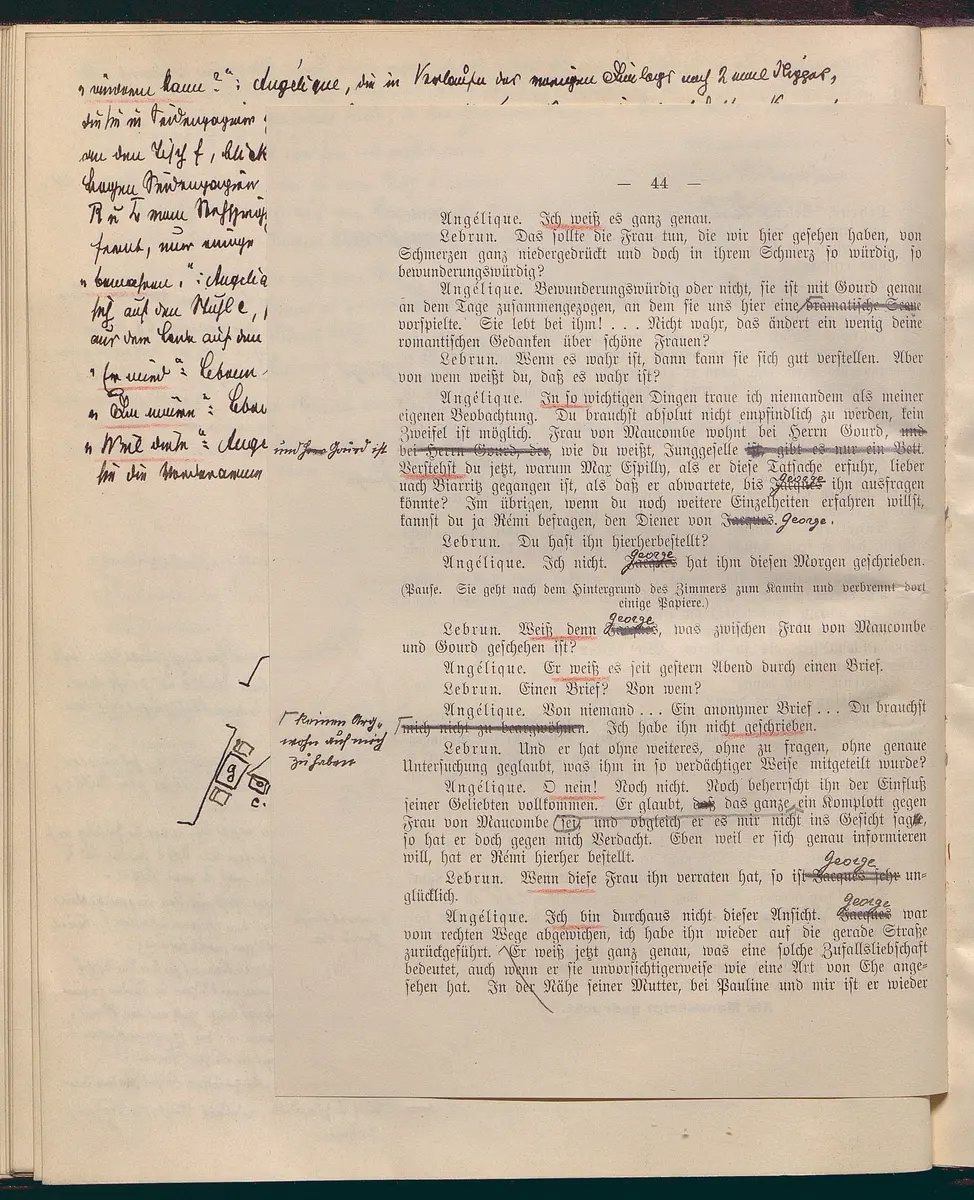 kann?": Angélique, die im Verlaufe des
an den Tisch f, blick
bewahren,": Angéliq
sich auf den Stuhl c,
aus dem Korb auf den
"Er wird": Lebrun
"Weil diese": Ange
sie die Vorderarme
— 44 —
Angélique. Ich weiß es ganz genau.
Lebrun. Das sollte die Frau tun, die wir hier gesehen haben, von
Schmerzen ganz niedergedrückt und doch in ihrem Schmerz so würdig, so
bewunderungswürdig?
Angélique. Bewunderungswürdig oder nicht, sie ist mit Gourd genau
an dem Tage zusammengezogen, an dem sie uns hier eine dramatische Scene
vorspielte. Sie lebt bei ihm! . . . Nicht wahr, das ändert ein wenig deine
romantischen Gedanken über schöne Frauen?
Lebrun. Wenn es wahr ist, dann kann sie sich gut verstellen. Aber
von wem weißt du, daß es wahr ist?
Angélique. In so wichtigen Dingen traue ich niemandem als meiner
eigenen Beobachtung. Du brauchst absolut nicht empfindlich zu werden, kein
Zweifel ist möglich. Frau von Maucombe wohnt bei Herrn Gourd, und
und Herr Gourd ist
bei Herrn Gourd, der, wie du weißt, Junggeselle ist, gibt es nur ein Bett.
Verstehst du jetzt, warum Max Espilly, als er diese Tatsache erfuhr, lieber
nach Biarritz gegangen ist, als daß er abwartete, bis Jacques George ihn ausfragen
könnte? Im übrigen, wenn du noch weitere Einzelheiten erfahren willst,
kannst du ja Rémi befragen, den Diener von Jacques. George.
Lebrun. Du hast ihn hierherbestellt?
Angélique. Ich nicht. Jacques George hat ihm diesen Morgen geschrieben.
(Pause. Sie geht nach dem Hintergrund des Zimmers zum Kamin und verbrennt dort
einige Papiere.)
Lebrun. Weiß denn Jacques George, was zwischen Frau von Maucombe
und Gourd geschehen ist?
Angélique. Er weiß es seit gestern Abend durch einen Brief.
Lebrun. Einen Brief? Von wem?
Angélique. Von niemand . . . Ein anonymer Brief . . . Du brauchst
keinen Arg-
wohn auf mich
zu haben
mich nicht zu beargwöhnen. Ich habe ihn nicht geschrieben.
Lebrun. Und er hat ohne weiteres, ohne zu fragen, ohne genaue
Untersuchung geglaubt, was ihm in so verdächtiger Weise mitgeteilt wurde?
Angélique. O nein! Noch nicht. Noch beherrscht ihn der Einfluß
seiner Geliebten vollkommen. Er glaubt, daß das ganze ein Komplott gegen
Frau von Maucombe sei, und obgleich er es mir nicht ins Gesicht sagte,
so hat er doch gegen mich Verdacht. Eben weil er sich genau informieren
will, hat er Rémi hierher bestellt.
Lebrun. Wenn diese Frau ihn verraten hat, so ist Jacques sehr George un-
glücklich.
Angélique. Ich bin durchaus nicht dieser Ansicht. Jacques George war
vom rechten Wege abgewichen, ich habe ihn wieder auf die gerade Straße
zurückgeführt. Er weiß jetzt ganz genau, was eine solche Zufallsliebschaft
bedeutet, auch wenn er sie unvorsichtigerweise wie eine Art von Ehe ange-
sehen hat. In der Nähe seiner Mutter, bei Pauline und mir ist er wieder